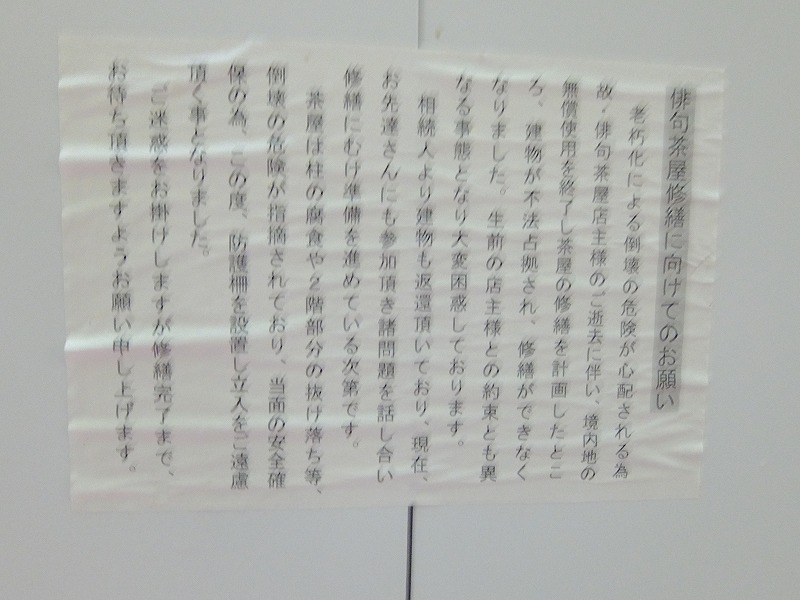 俳句茶屋修繕に向けてのお願い
老朽化による倒壊の危険が心配される為
故・俳句茶屋店主様のご逝去に伴い、境内地の
無償使用を終了し茶屋の修繕を計画したとこ
ろ、建物が不法占拠され、修繕ができなく
なりました。生前の店主様との約束とも異
なる事態となり大変困惑しております。
相続人より建物も返還頂いており、現在、
お先達さんにも参加頂き諸問題を話し合い
修繕にむけ準備を進めている次第です。
茶屋は柱の腐食や2階部分の抜け落ち等、
倒壊の危険が指摘されており、当面の安全確
保の為、この度、防護柵を設置し立入をご遠慮
頂く事となりました。
ご迷惑をお掛けしますが修繕完了まで、
お待ち頂きますようお願い申し上げます。